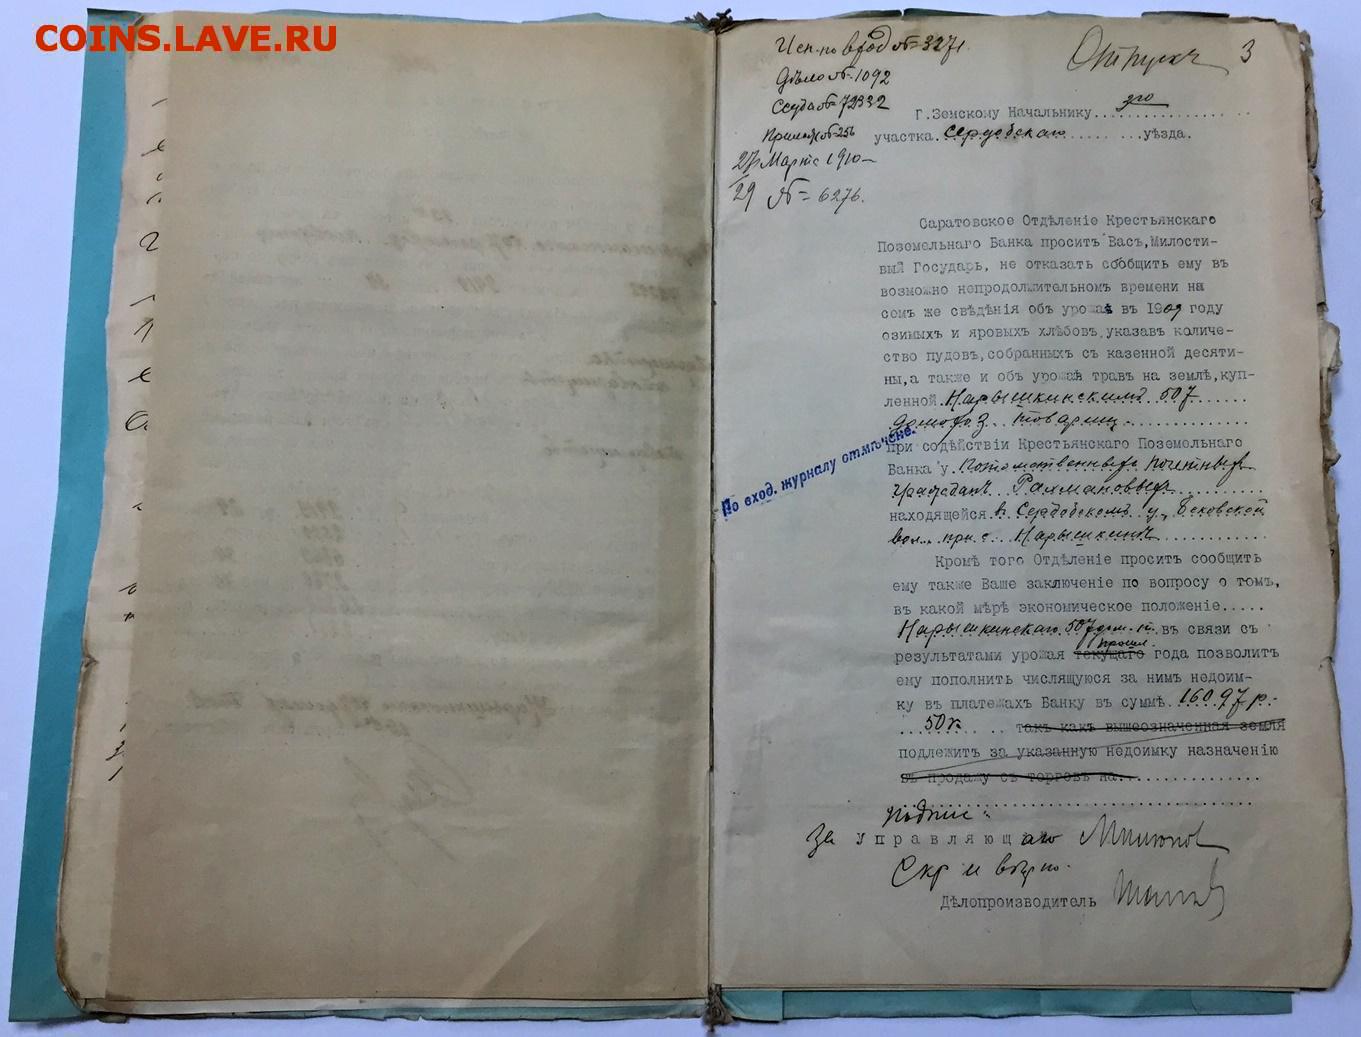 COINS.LAVE.RU
Исп. по вход № 3271
Отпускъ 3
Дѣло № 1092
Ссуда № 72332
Г. Земскому Начальнику
участка Сердобскаго уѣзда.
27 Марта 1910
29 № 6276.
Саратовское Отдѣленіе Крестьянскаго
Поземельнаго Банка проситъ Васъ, Милости-
вый Государь, не отказать сообщить ему въ
возможно непродолжительном времени на
семъ же свѣдѣнія объ урожаѣ въ 1909 году
озимыхъ и яровыхъ хлѣбовъ, указавъ количе-
ство пудовъ, собранныхъ съ казенной десяти-
ны, а также и объ урожаѣ травъ на землѣ, куп-
ленной Нарышкинскимъ 507
домохоз. товарищ.
При содѣйствіи Крестьянскаго Поземельнаго
Банка у Потомственныхъ почетныхъ
гражданъ Рахмановыхъ
находящейся въ Сердобскомъ у., Бековской
вол. при с. Нарышкинѣ
По вход. журналу отмѣчено.
Кромѣ того Отдѣленіе проситъ сообщить
ему также Ваше заключеніе по вопросу о томъ,
въ какой мѣрѣ экономическое положеніе.....
Нарышкинскаго 507 дом. т. въ связи съ
прошл.
результатами урожая текущаго года позволитъ
ему пополнить числящуюся за нимъ недоим-
ку въ платежахъ Банку въ суммѣ 16097 р.
50 к такъ какъ вышеозначенная земля
подлежитъ за указанную недоимку назначенію
въ продажу съ торговъ на
подпис:
За управляющаго
Скр и вѣрно.
Дѣлопроизводитель